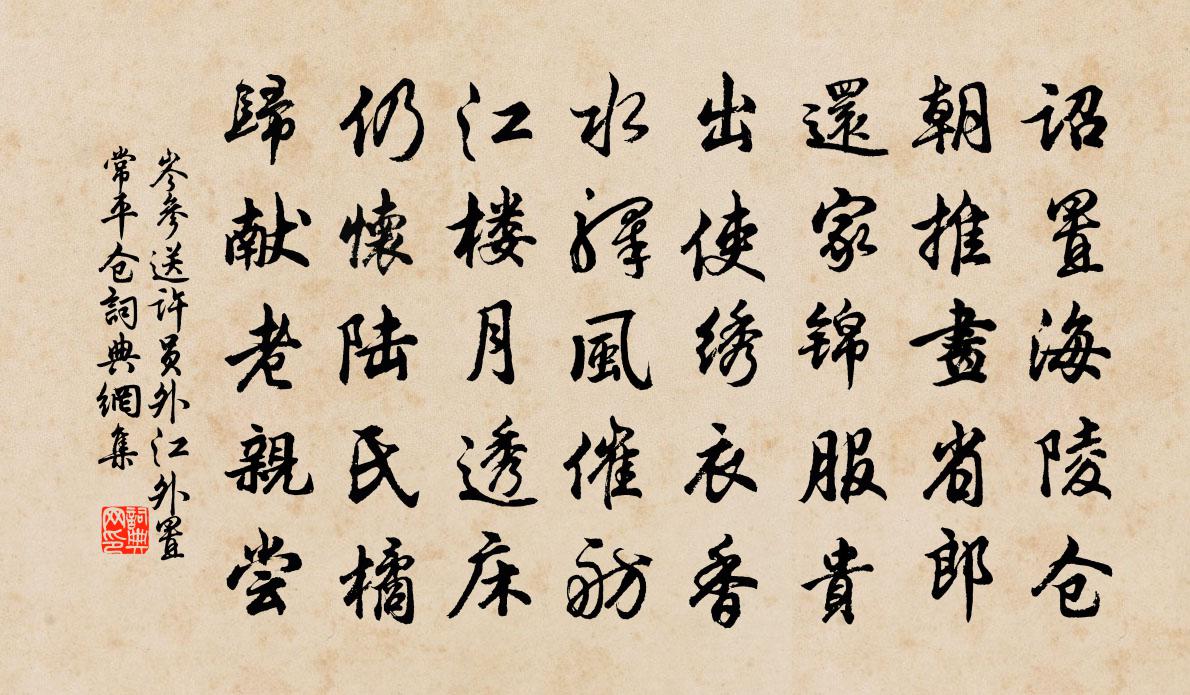 詔置海陵仓
朝推畫省郎
還家锦服貴
出使绣衣香
水驛風催舫
江楼月透床
仍懷陆氏橘
歸献老親尝
岑參送许员外江外置
常平仓詞典網集
詞典
网印